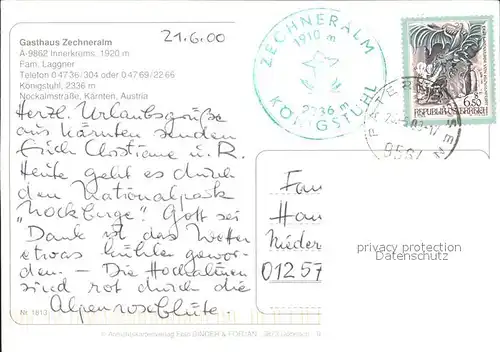 Gasthaus Zechneralm
A-9862 Innerkrems, 1920 m
Fam. Laggner
Telefon 0 47 36 / 304 oder 0 47 69 / 22 66
Königstuhl, 2336 m
Nockalmstraße, Kärnten, Austria
21.6.00
ZECHNERALM
1910 m
2336 m
KÖNIGSTUHL
6.50
REPUBLIK ÖSTERREICH
PATERN
9561
Herzl. Urlaubsgrüße
aus Kärnten senden
Erich Christiane u. R.
Heute geht es durch
den Nationalpark
„Nockberge“! Gott sei
Dank ist das Wetter
etwas kühler gewor-
den. – Die Hochalmen
sind rot durch die
Alpenroseblüte.
Fam
Haus
Nieder
01257
privacy protection
Datenschutz
Nr. 1813